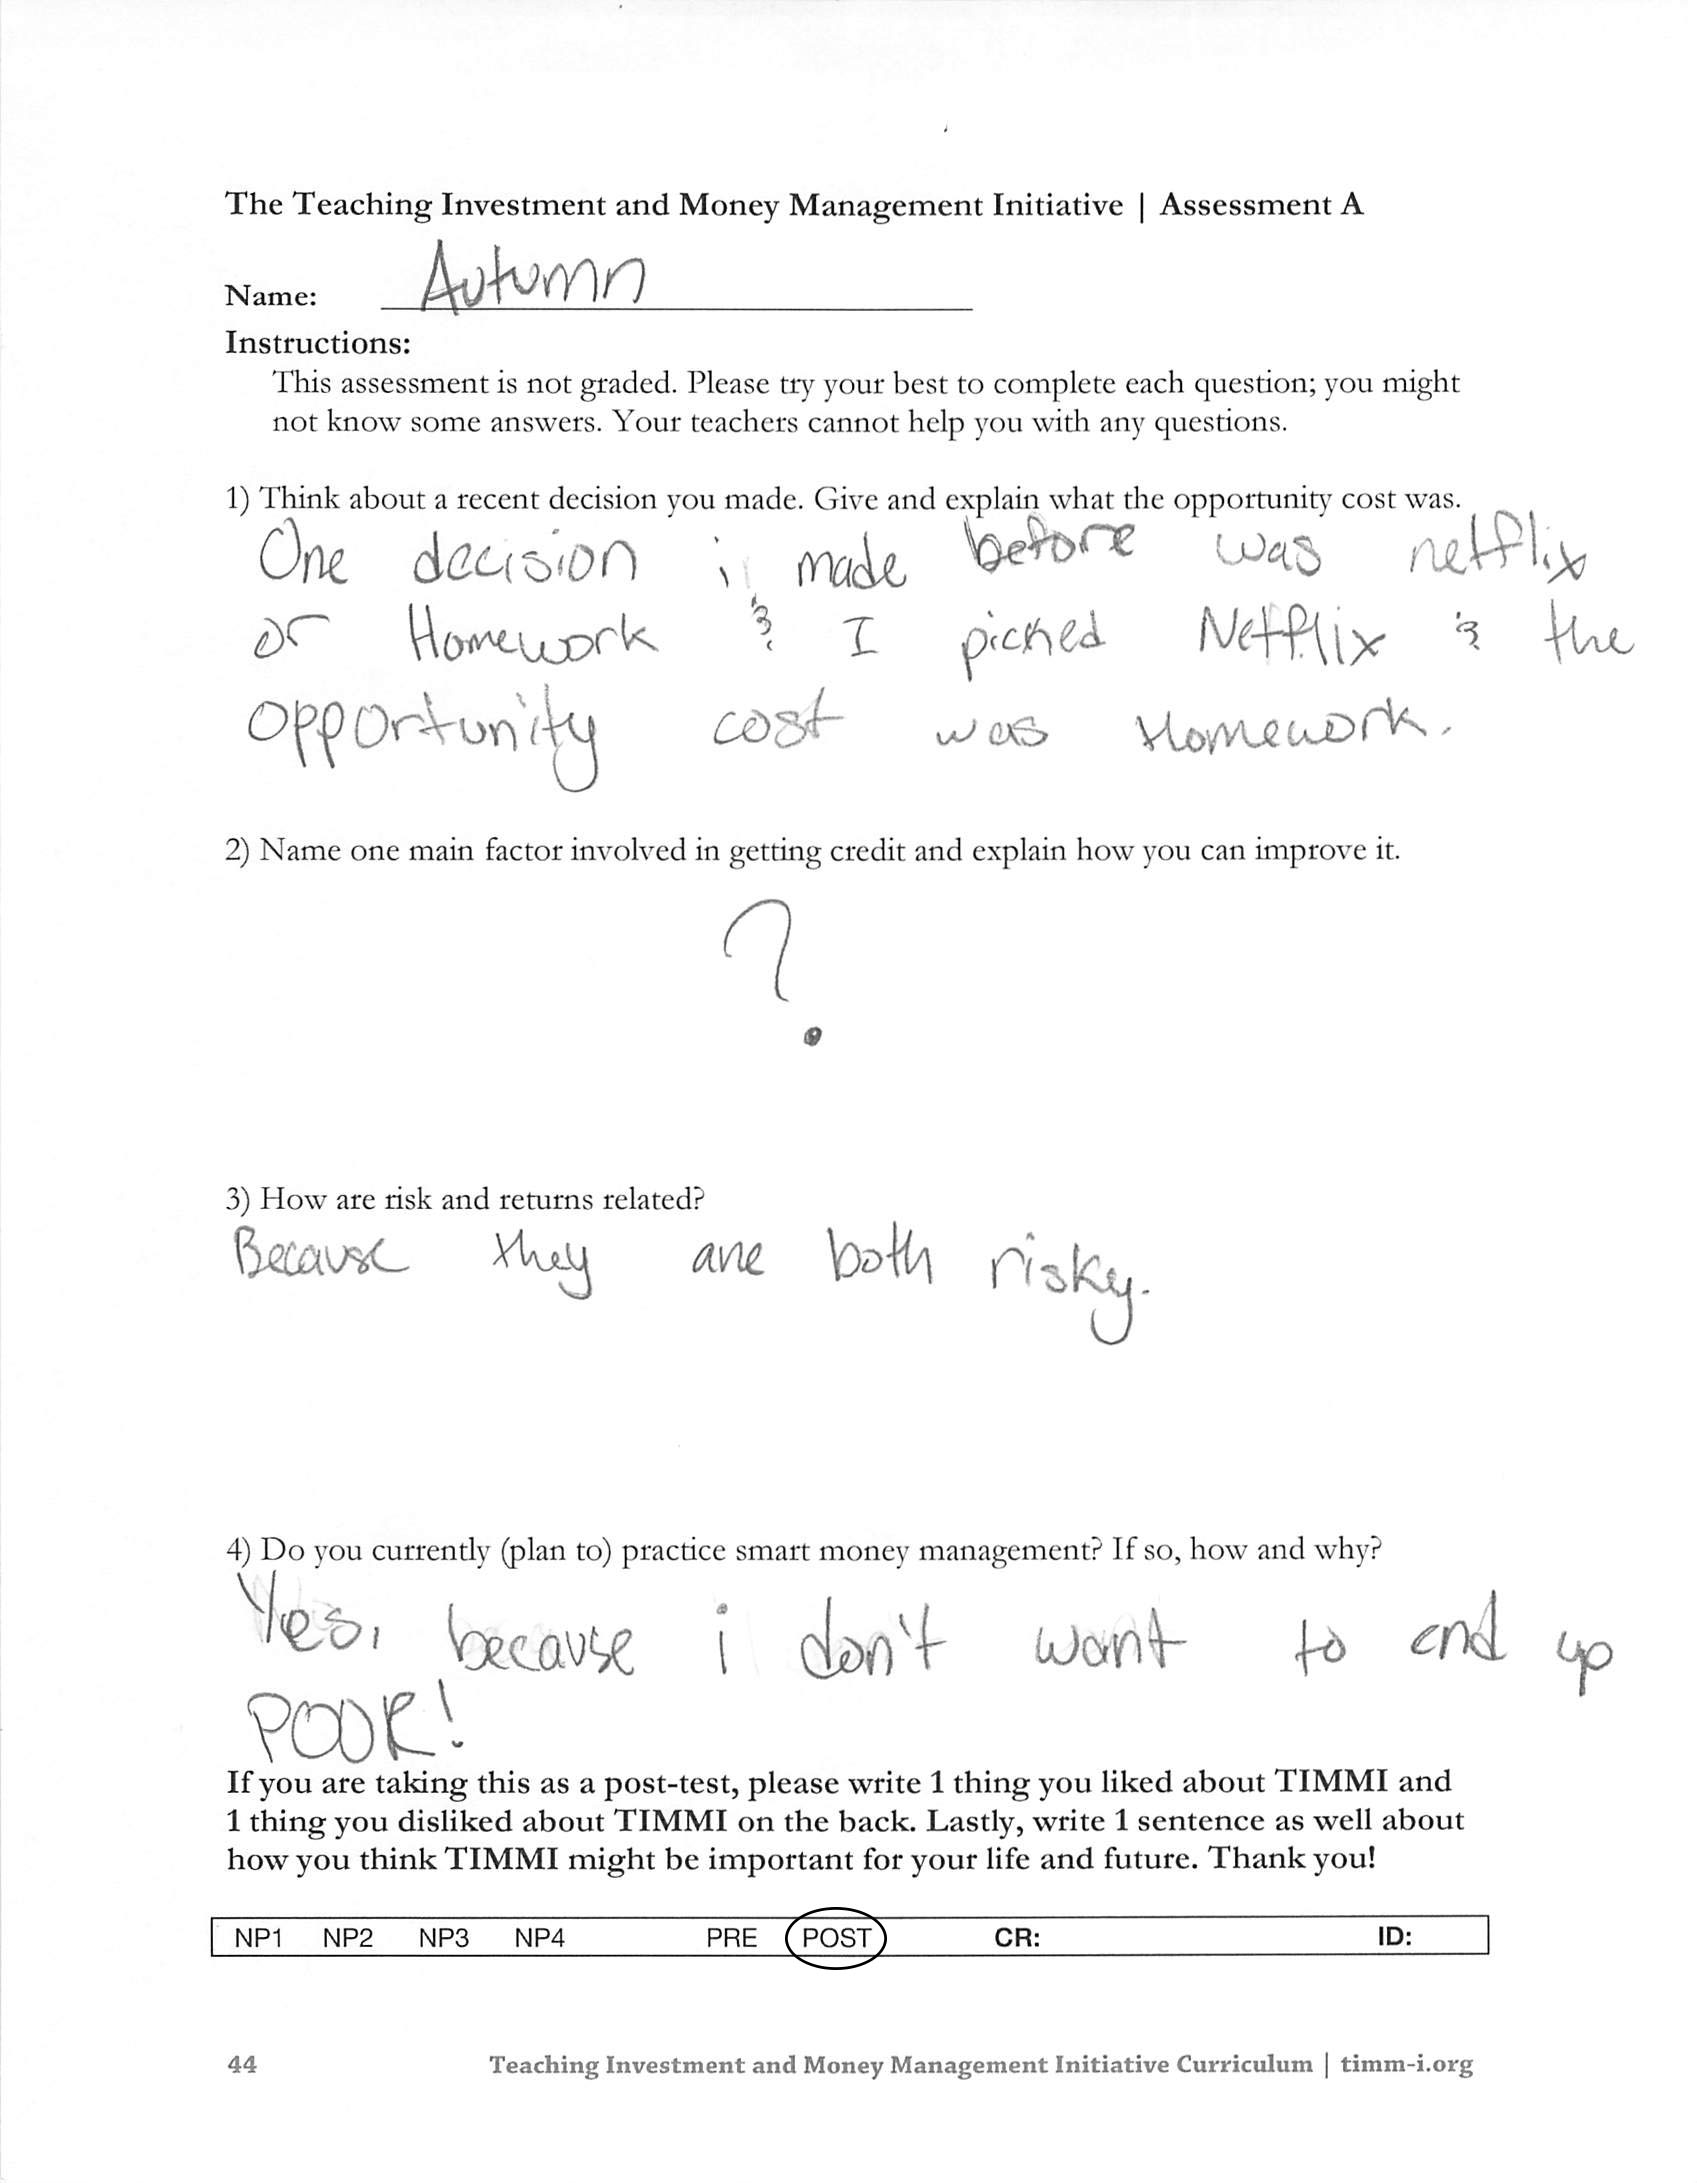 The Teaching Investment and Money Management Initiative | Assessment A
Name: Autumn
Instructions:
This assessment is not graded. Please try your best to complete each question; you might
not know some answers. Your teachers cannot help you with any questions.
1) Think about a recent decision you made. Give and explain what the opportunity cost was.
One decision i made before was netflix
or Homework & I picked Netflix & the
opportunity cost was Homework.
2) Name one main factor involved in getting credit and explain how you can improve it.
?
3) How are risk and returns related?
Because they are both risky.
4) Do you currently (plan to) practice smart money management? If so, how and why?
Yes, because i don't want to end up
POOR!
If you are taking this as a post-test, please write 1 thing you liked about TIMMI and
1 thing you disliked about TIMMI on the back. Lastly, write 1 sentence as well about
how you think TIMMI might be important for your life and future. Thank you!
NP1 NP2 NP3 NP4 PRE POST CR: ID:
44 Teaching Investment and Money Management Initiative Curriculum | timm-i.org